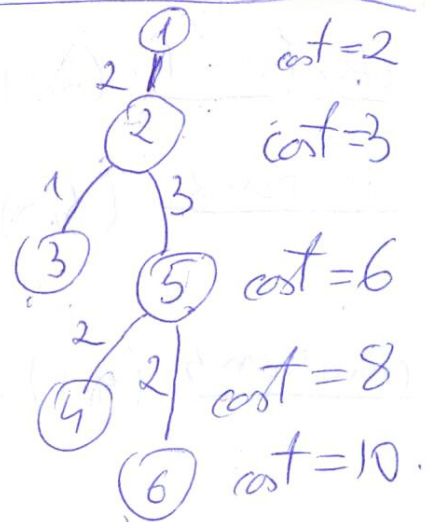 1
2 cost=2
2 cost=3
1 3
3 5 cost=6
2 2 cost=8
4
6 cost=10.